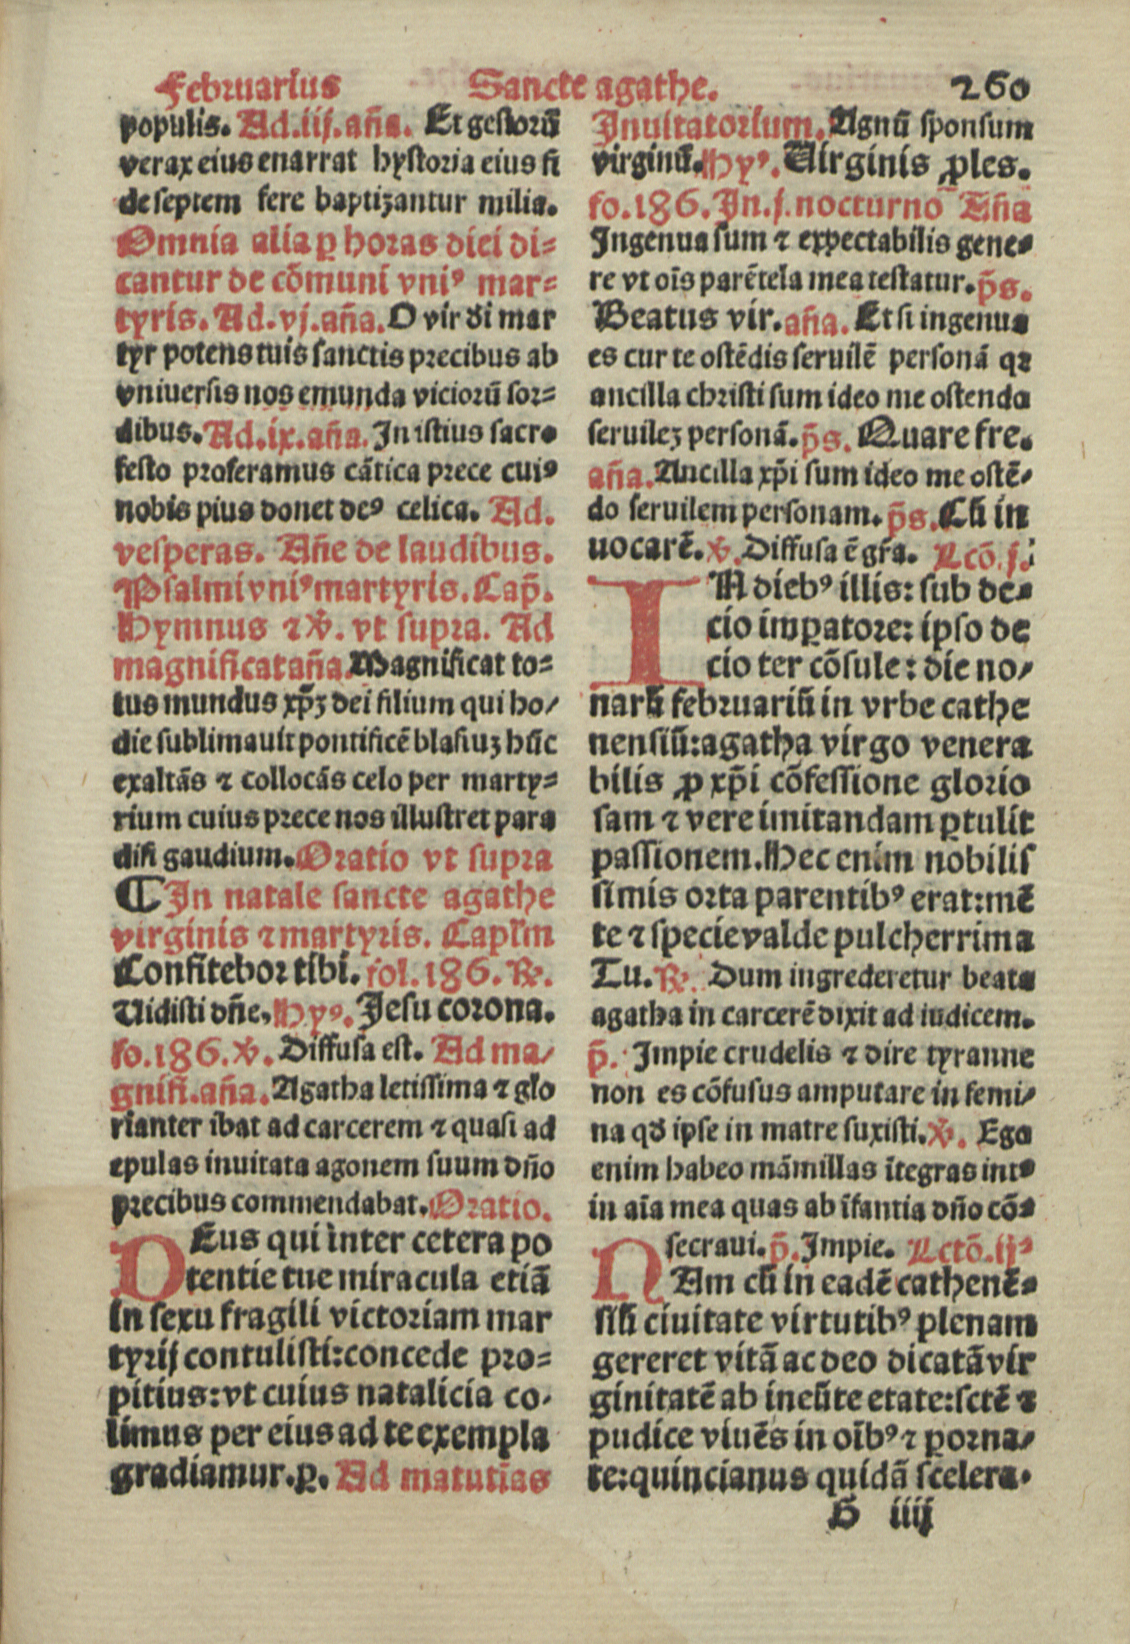 Februarius Sancte agathe. 260
populis. Ad.iij.aña. Et gestorū
verax eius enarrat hystoria eius fi
de septem fere baptizantur milia.
Omnia alia ꝑ horas diei di=
cantur de cōmuni vniꝰ mar=
tyris. Ad.vj.aña. O vir di mar
tyr potens tuis sanctis precibus ab
vniuersis nos emunda viciorū sor=
dibus. Ad.ix.aña. In istius sacro
festo proferamus cātica prece cuiꝰ
nobis pius donet deꝰ celica. Ad.
vesperas. Añe de laudibus.
Psalmi vniꝰ martyris. Cap̄.
Hymnus ⁊ ℣. vt supra. Ad
magnificat aña. Magnificat to=
tus mundus xp̄ʒ dei filium qui ho/
die sublimauit pontificē blasiuʒ hūc
exaltās ⁊ collocās celo per marty=
rium cuius prece nos illustret para
disi gaudium. Oratio vt supra
¶ In natale sancte agathe
virginis ⁊ martyris. Capl̄m
Confitebor tibi. fol.186. ℟.
Uidisti dñe, Hyꝰ. Jesu corona.
fo.186. ℣. Diffusa est. Ad ma/
gnifi.aña. Agatha letissima ⁊ glo
rianter ibat ad carcerem ⁊ quasi ad
epulas inuitata agonem suum dño
precibus commendabat. Oratio.
DEus qui inter cetera po
tentie tue miracula etiā
in sexu fragili victoriam mar
tyrij contulisti: concede pro=
pitius: vt cuius natalicia co.
limus per eius ad te exempla
gradiamur. ꝑ. Ad matutīas
Inuitatorium. Agnū sponsum
virginū. Hyꝰ. Uirginis ꝓles.
fo.186. In.j.nocturno Aña
Ingenua sum ⁊ expectabilis gene=
re vt oīs parētela mea testatur. p̄s.
Beatus vir. aña. Et si ingenua
es cur te ostēdis seruilē personā qꝛ
ancilla christi sum ideo me ostendo
seruileʒ personā. p̄s. Quare fre.
aña. Ancilla xp̄i sum ideo me ostē/
do seruilem personam. p̄s. Cū in
uocarē. ℣. Diffusa ē gr̄a. Lcō.j.
IN diebꝰ illis: sub de=
cio imꝑatore: ipso de
cio ter cōsule: die no/
narū februariū in vrbe cathe
nensiū: agatha virgo venera
bilis ꝓ xp̄i cōfessione glorio
sam ⁊ vere imitandam ꝑtulit
passionem. Hec enim nobilis
simis orta parentibꝰ erat: mē
te ⁊ specie valde pulcherrima
Tu. ℟. Dum ingrederetur beata
agatha in carcerē dixit ad iudicem.
p̄. Impie crudelis ⁊ dire tyranne
non es cōfusus amputare in femi/
na qd ipse in matre suxisti. ℣. Ego
enim habeo māmillas ītegras intꝰ
in aīa mea quas ab īfantia dño cō=
secraui. p̄. Impie. Lctō.ijᵃ
NAm cū in eadē cathenē=
siū ciuitate virtutibꝰ plenam
gereret vitā ac deo dicatā vir
ginitatē ab ineūte etate: sctē ⁊
pudice viuēs in oībꝰ ⁊ ꝑorna/
te: quincianus quidā scelera.
H iiij